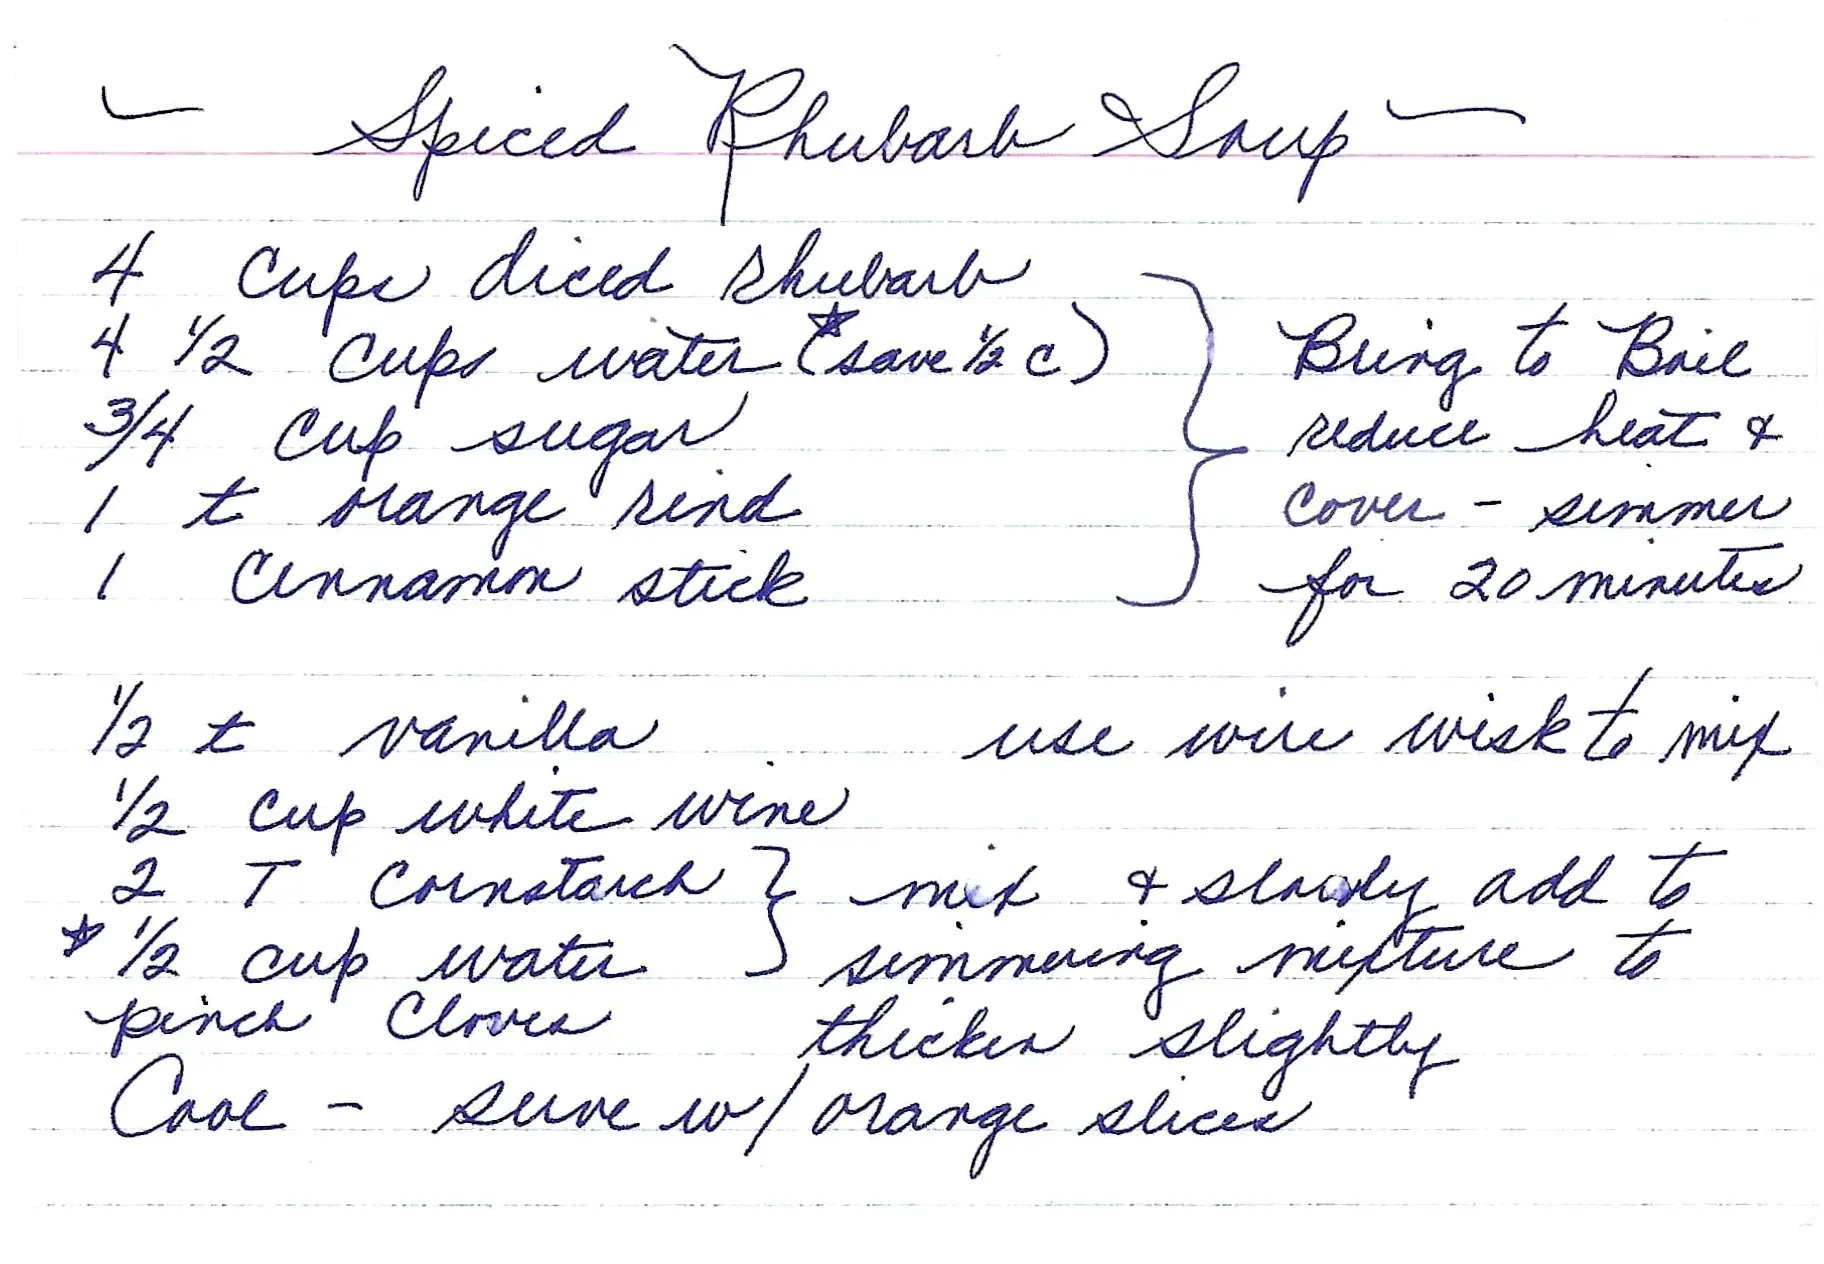 ~ Spiced Rhubarb Soup ~
4 cups diced rhubarb
4 1/2 cups water (*save 1/2 c)
3/4 cup sugar
1 t orange rind
1 Cinnamon stick
Bring to Boil
reduce heat &
cover - simmer
for 20 minutes
1/2 t vanilla use wire wisk to mix
1/2 cup white wine
2 T Cornstarch
* 1/2 cup water
mix & slowly add to
simmering mixture to
thicken slightly
pinch Cloves
Cool - serve w/ orange slices